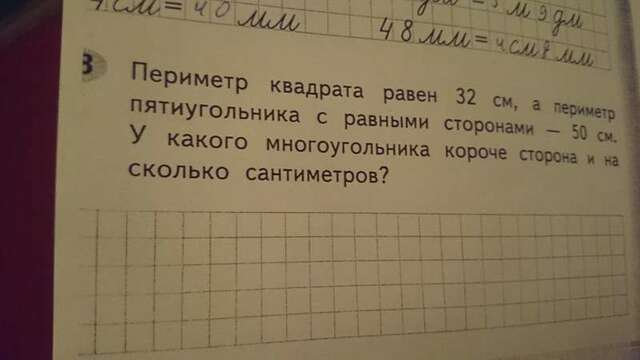 см = 40 мм
м 9 дм
48 мм = 4 см 8 мм
Периметр квадрата равен 32 см, а периметр
пятиугольника с равными сторонами — 50 см.
У какого многоугольника короче сторона и на
сколько сантиметров?